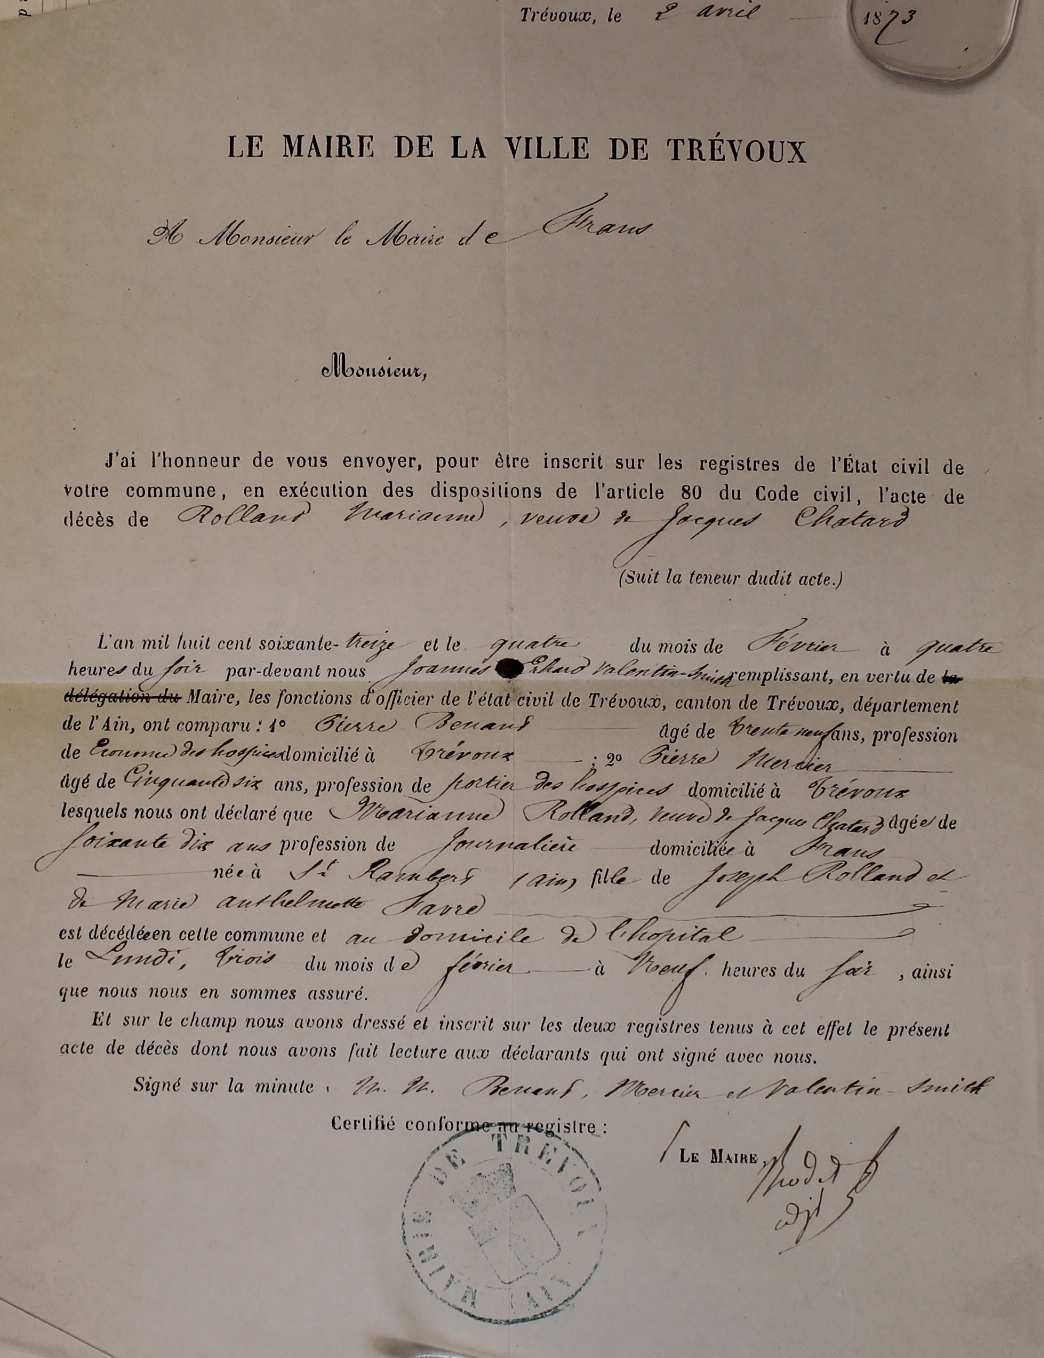 Trévoux, le 2 avril 1873
LE MAIRE DE LA VILLE DE TRÉVOUX
A Monsieur le Maire de Frans
Monsieur,
J'ai l'honneur de vous envoyer, pour être inscrit sur les registres de l'État civil de
votre commune, en exécution des dispositions de l'article 80 du Code civil, l'acte de
décès de Rolland Marianne, veuve de Jacques Chatard
(Suit la teneur dudit acte.)
L'an mil huit cent soixante-treize et le quatre du mois de Février à quatre
heures du soir par-devant nous Joannès Erhard Valentin-Smith remplissant, en vertu de la
délégation du Maire, les fonctions d'officier de l'état civil de Trévoux, canton de Trévoux, département
de l'Ain, ont comparu : 1o Pierre Benand âgé de trente neuf ans, profession
de Econome des hospices domicilié à Trévoux ; 2o Pierre Mercier
âgé de Cinquante six ans, profession de portier des hospices domicilié à Trévoux
lesquels nous ont déclaré que Marianne Rolland, veuve de Jacques Chatard âgée de
soixante dix ans profession de Journalière domiciliée à Frans
née à St Rambert (Ain) fille de Joseph Rolland et
de Marie anthelmette Favre
est décédée en cette commune et au domicile de l'hopital
le Lundi, trois du mois de février à Neuf heures du soir, ainsi
que nous nous en sommes assuré.
Et sur le champ nous avons dressé et inscrit sur les deux registres tenus à cet effet le présent
acte de décès dont nous avons fait lecture aux déclarants qui ont signé avec nous.
Signé sur la minute : M. M. Benand, Mercier et Valentin-Smith
Certifié conforme au registre :
LE MAIRE,
adjt
MAIRIE DE TRÉVOUX
(AIN)